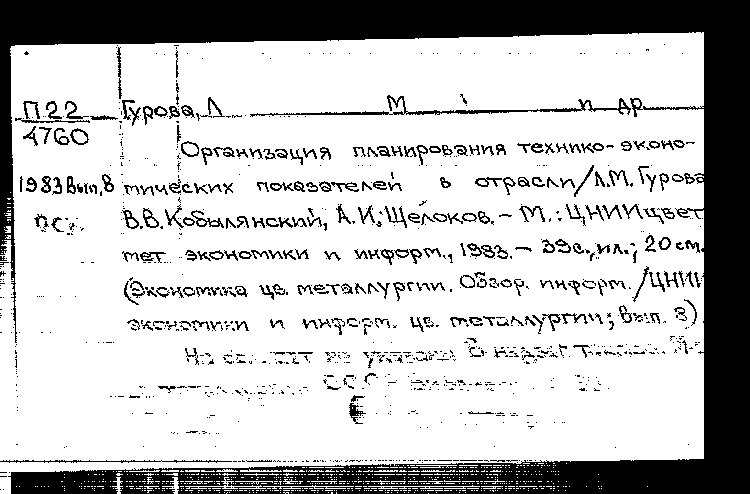 П22 Гурова, Л М и др
4760
Организация планирования технико-эконо-
1983 Вып, 8 мических показателей в отрасли/Л.М. Гурова
В.В. Кобылянский, А.И. Щелоков. – М.: ЦНИИцвет
мет экономики и информ., 1983. – 39с., ил.; 20 см.
(Экономика цв. металлургии. Обзор. информ. /ЦНИИ
экономики и информ. цв. металлургии; вып. 8)
не указаны В
СССР